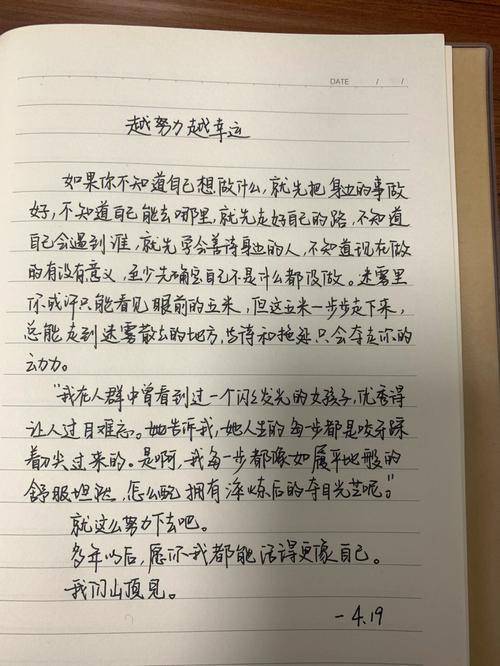 DATE / /
越努力越幸运
如果你不知道自己想做什么,就先把身边的事做
好,不知道自己能去哪里,就先走好自己的路,不知道
自己会遇到谁,就先学会善待身边的人,不知道现在做
的有没有意义,至少先确定自己不是什么都没做。迷雾里
你或许只能看见眼前的五米,但这五米一步步走下来,
总能走到迷雾散去的地方,等待和拖延只会夺走你的
动力。
“我在人群中曾看到过一个闪闪发光的女孩子,优秀得
让人过目难忘。她告诉我,她人生的每一步都是咬牙踩
着刀尖过来的。是啊,我每一步都像如履平地般的
舒服坦然,怎么配拥有淬炼后的夺目光芒呢。”
就这么努力下去吧。
多年以后,愿你我都能活得更像自己。
我们山顶見。
-4.19